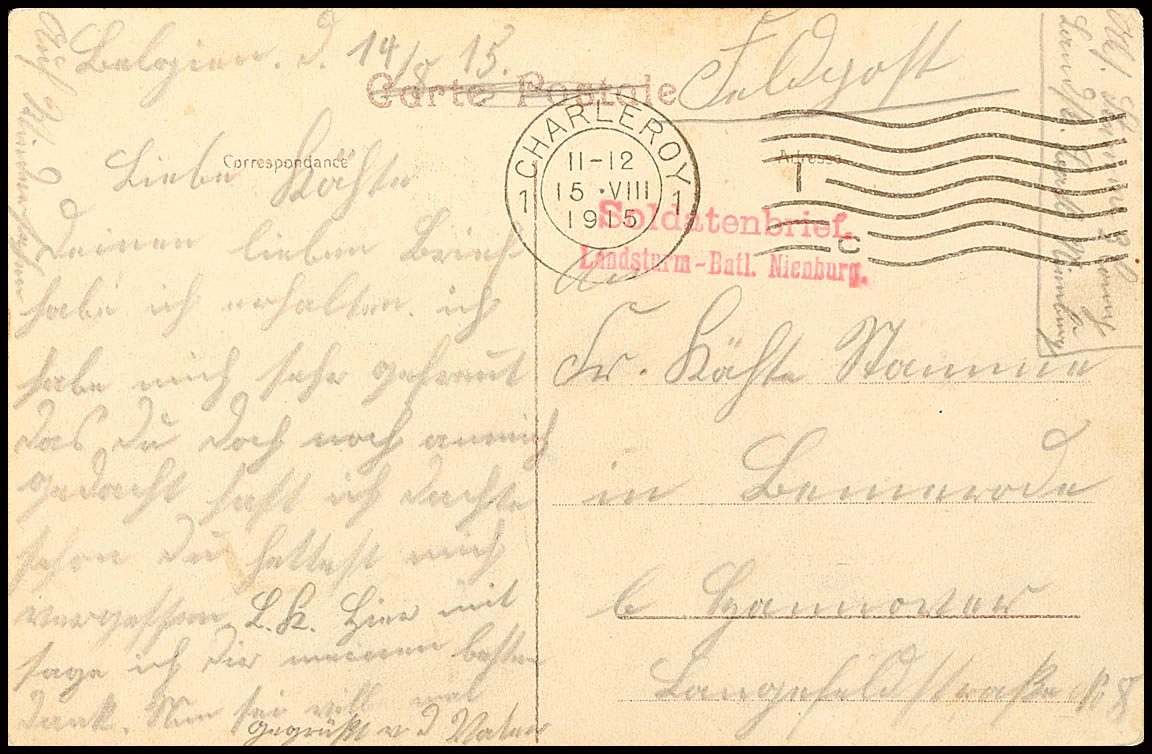 Belgien. d. 14/8 15.
Carte Postale
Feldpost
Correspondance
Adresse
CHARLEROY
1 1
11-12
15 ·VIII
1915
Soldatenbrief.
Landsturm-Batl. Nienburg.
Liebe Kähte
Deinen lieben Brief
habe ich erhalten. ich
habe mich sehr gefreut
das du doch noch an mich
gedacht hast ich dachte
schon du hettest mich
vergessen L.K. Hier mit
sage ich dir meinen besten
dank. Nun sei viel mal
gegrüßt v d Vater
Auf Wiedersehen
An
Fr. Kähte Stamme
in Bemerode
b Hannover
Langefeldstraße № 8